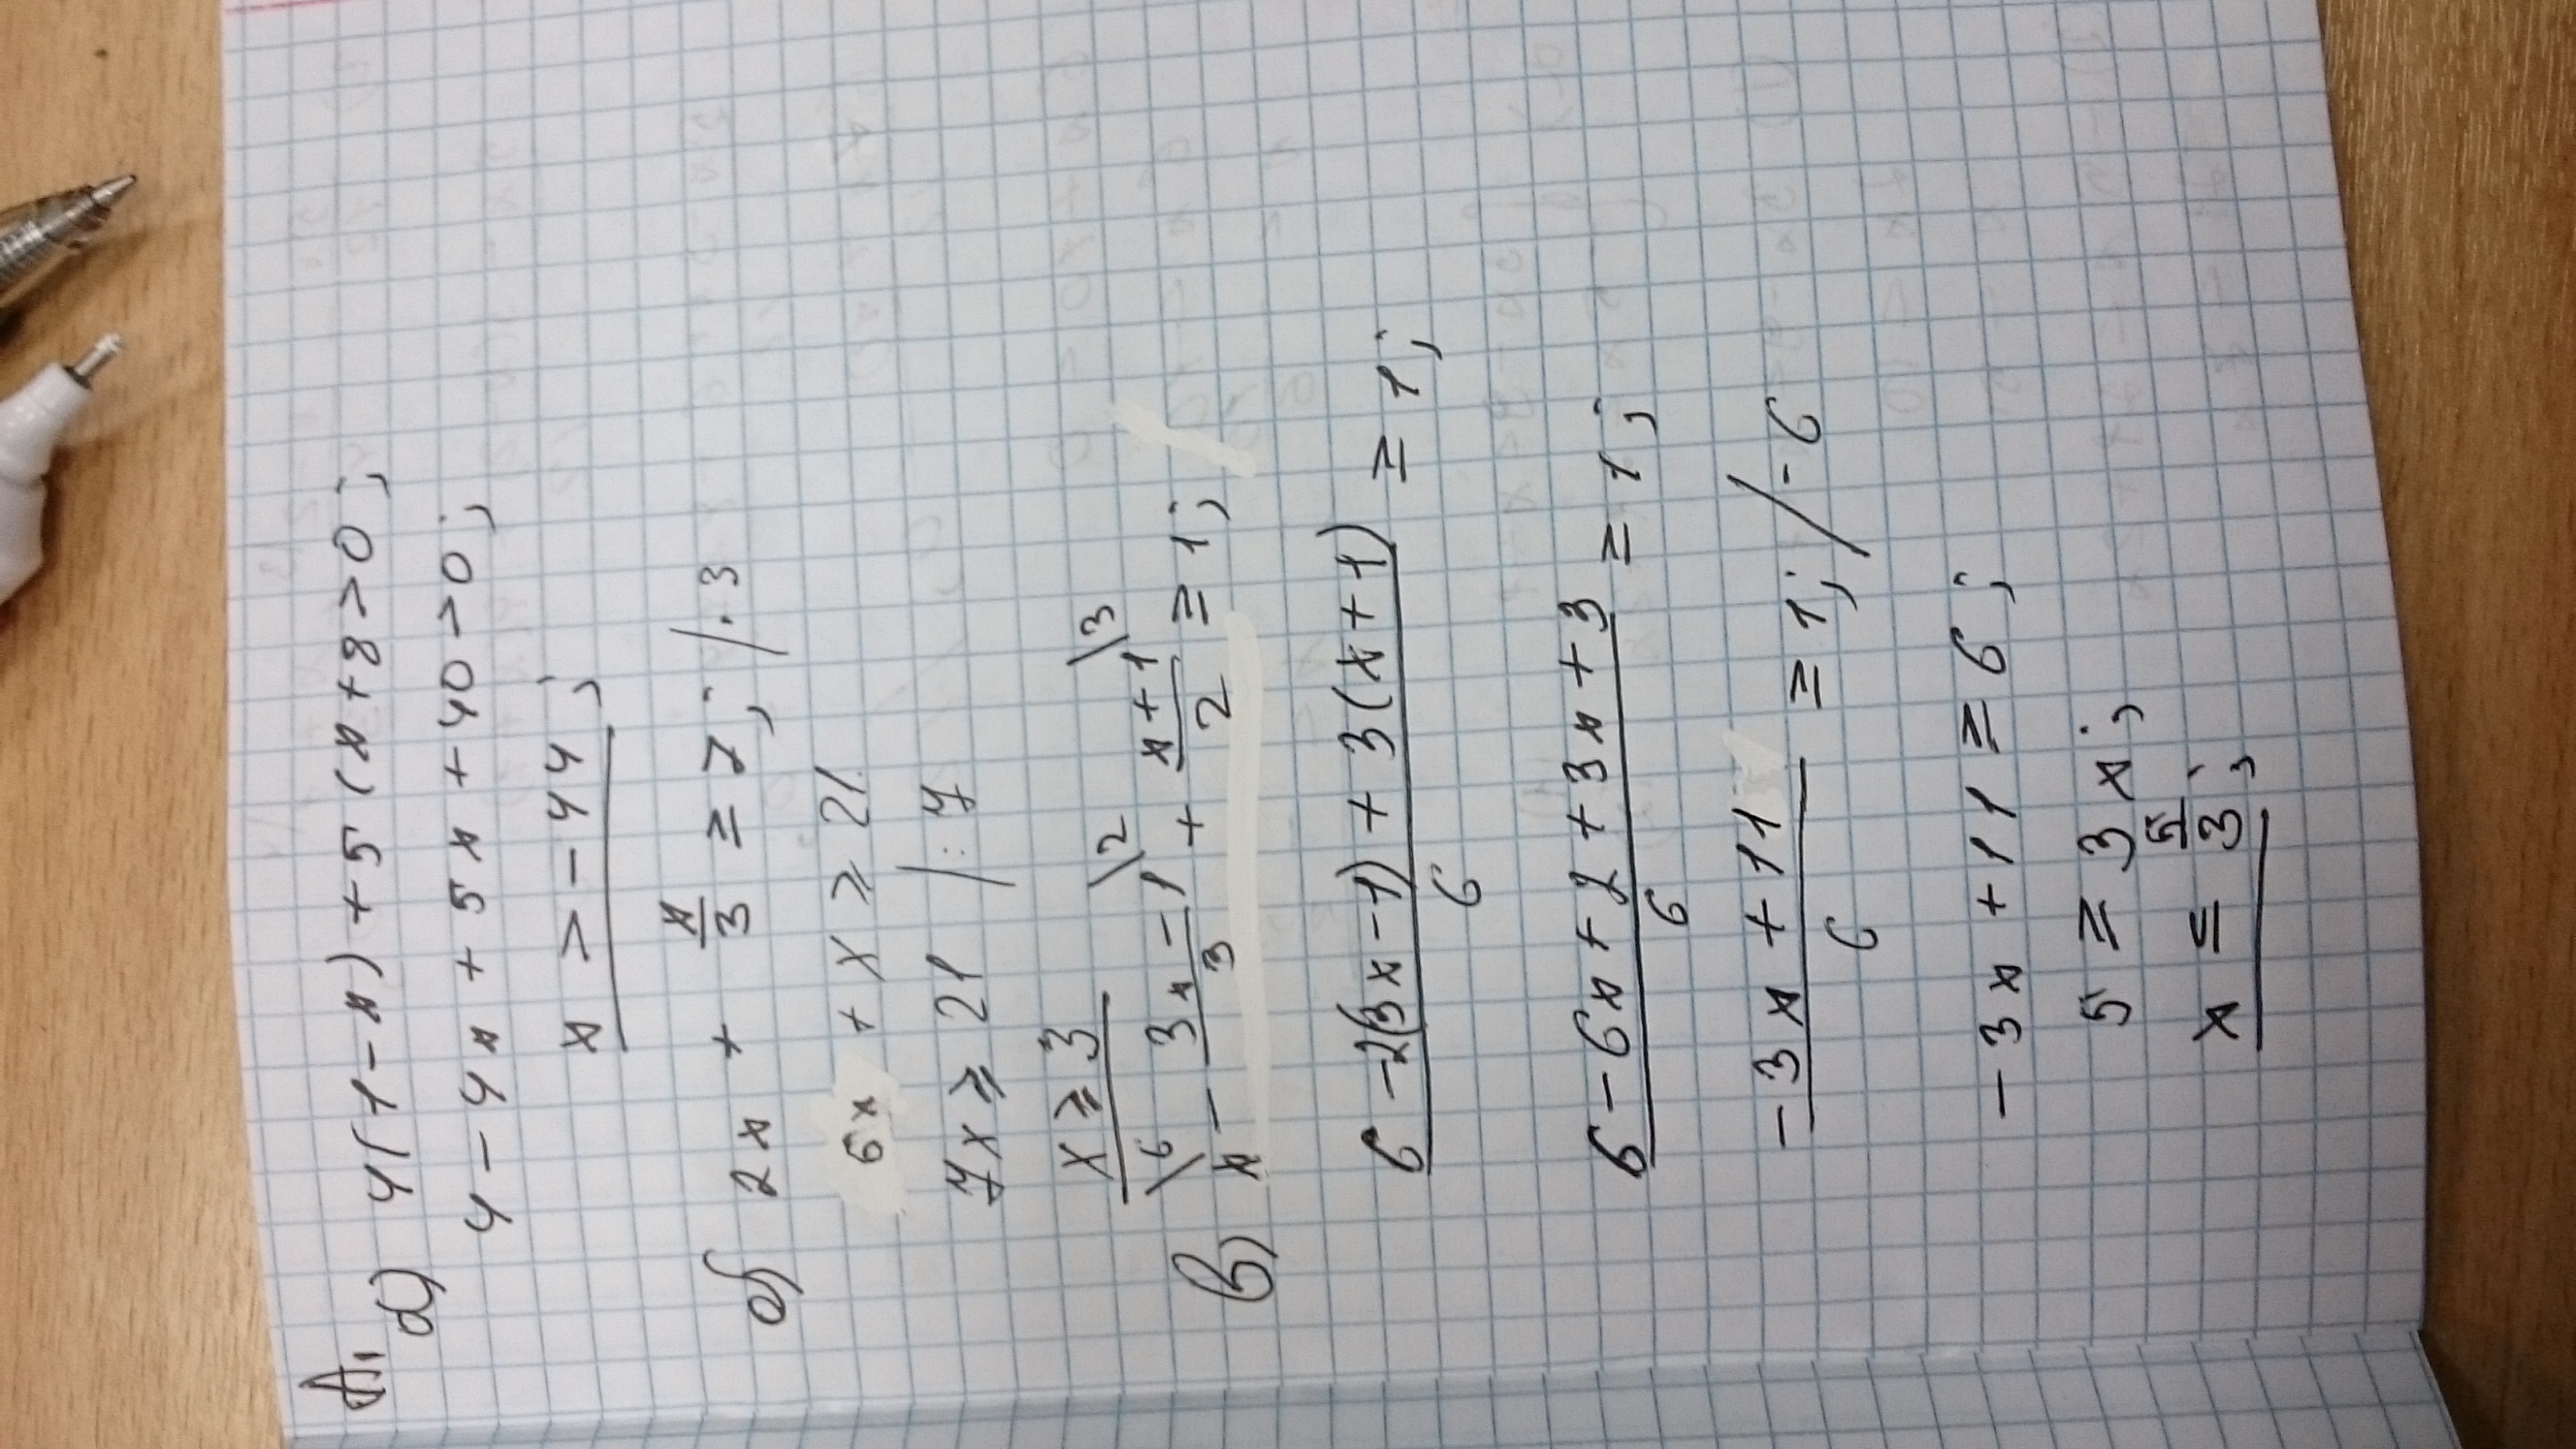 A1
а) 4(1-x)+5(x+8>0;
4-4x+5x+40>0;
x>-44;
б) 2x + x/3 ≥ 7; /·3
6x + x ≥ 21
7x ≥ 21 /:7
x ≥ 3
в) x\6 - 3x-1/3\2 + x+1/2\3 ≥ 1;
6-2(3x-1)+3(x+1)/6 ≥ 1;
6-6x+2+3x+3/6 ≥ 1;
-3x+11/6 ≥ 1; /·6
-3x+11 ≥ 6;
5 ≥ 3x;
x ≤ 5/3;